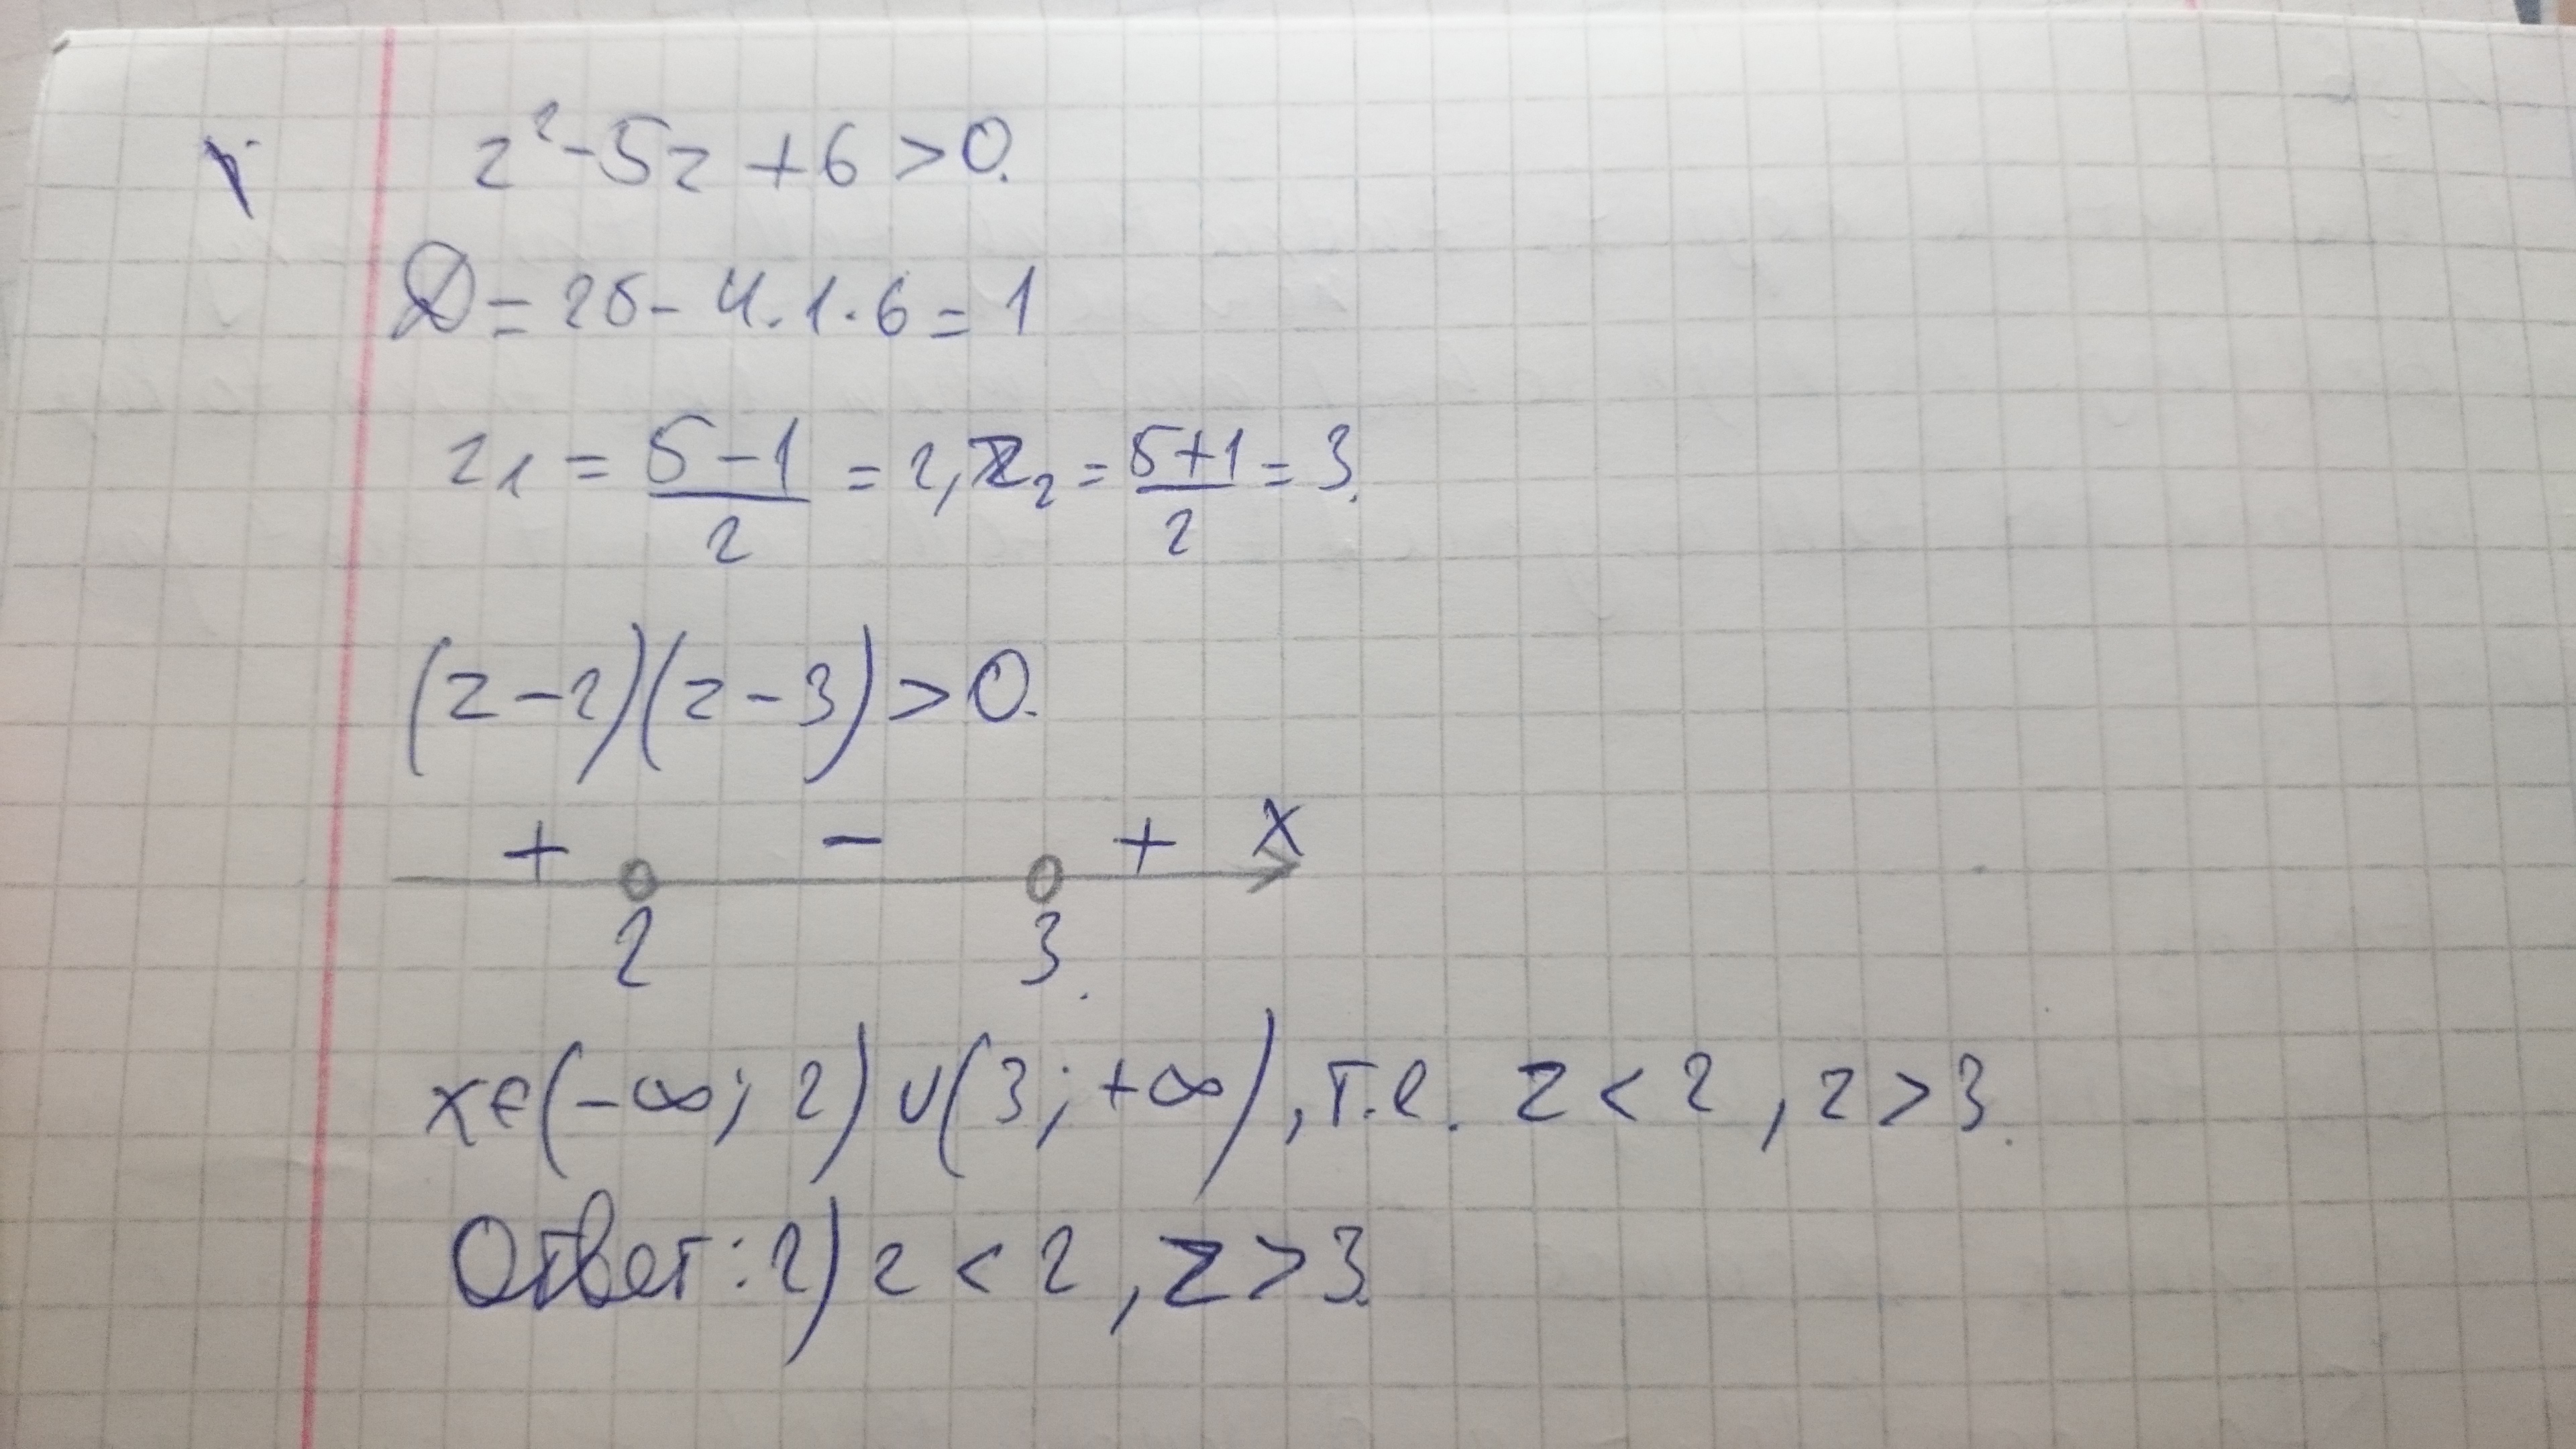 z² - 5z + 6 > 0.
D = 25 - 4 · 1 · 6 = 1
z₁ = (5 - 1)/2 = 2, z₂ = (5 + 1)/2 = 3.
(z - 2)(z - 3) > 0.
+ - + x
2 3.
x ∈ (-∞; 2) ∪ (3; +∞), т.е. z < 2, z > 3.
Ответ: 2) z < 2, z > 3.